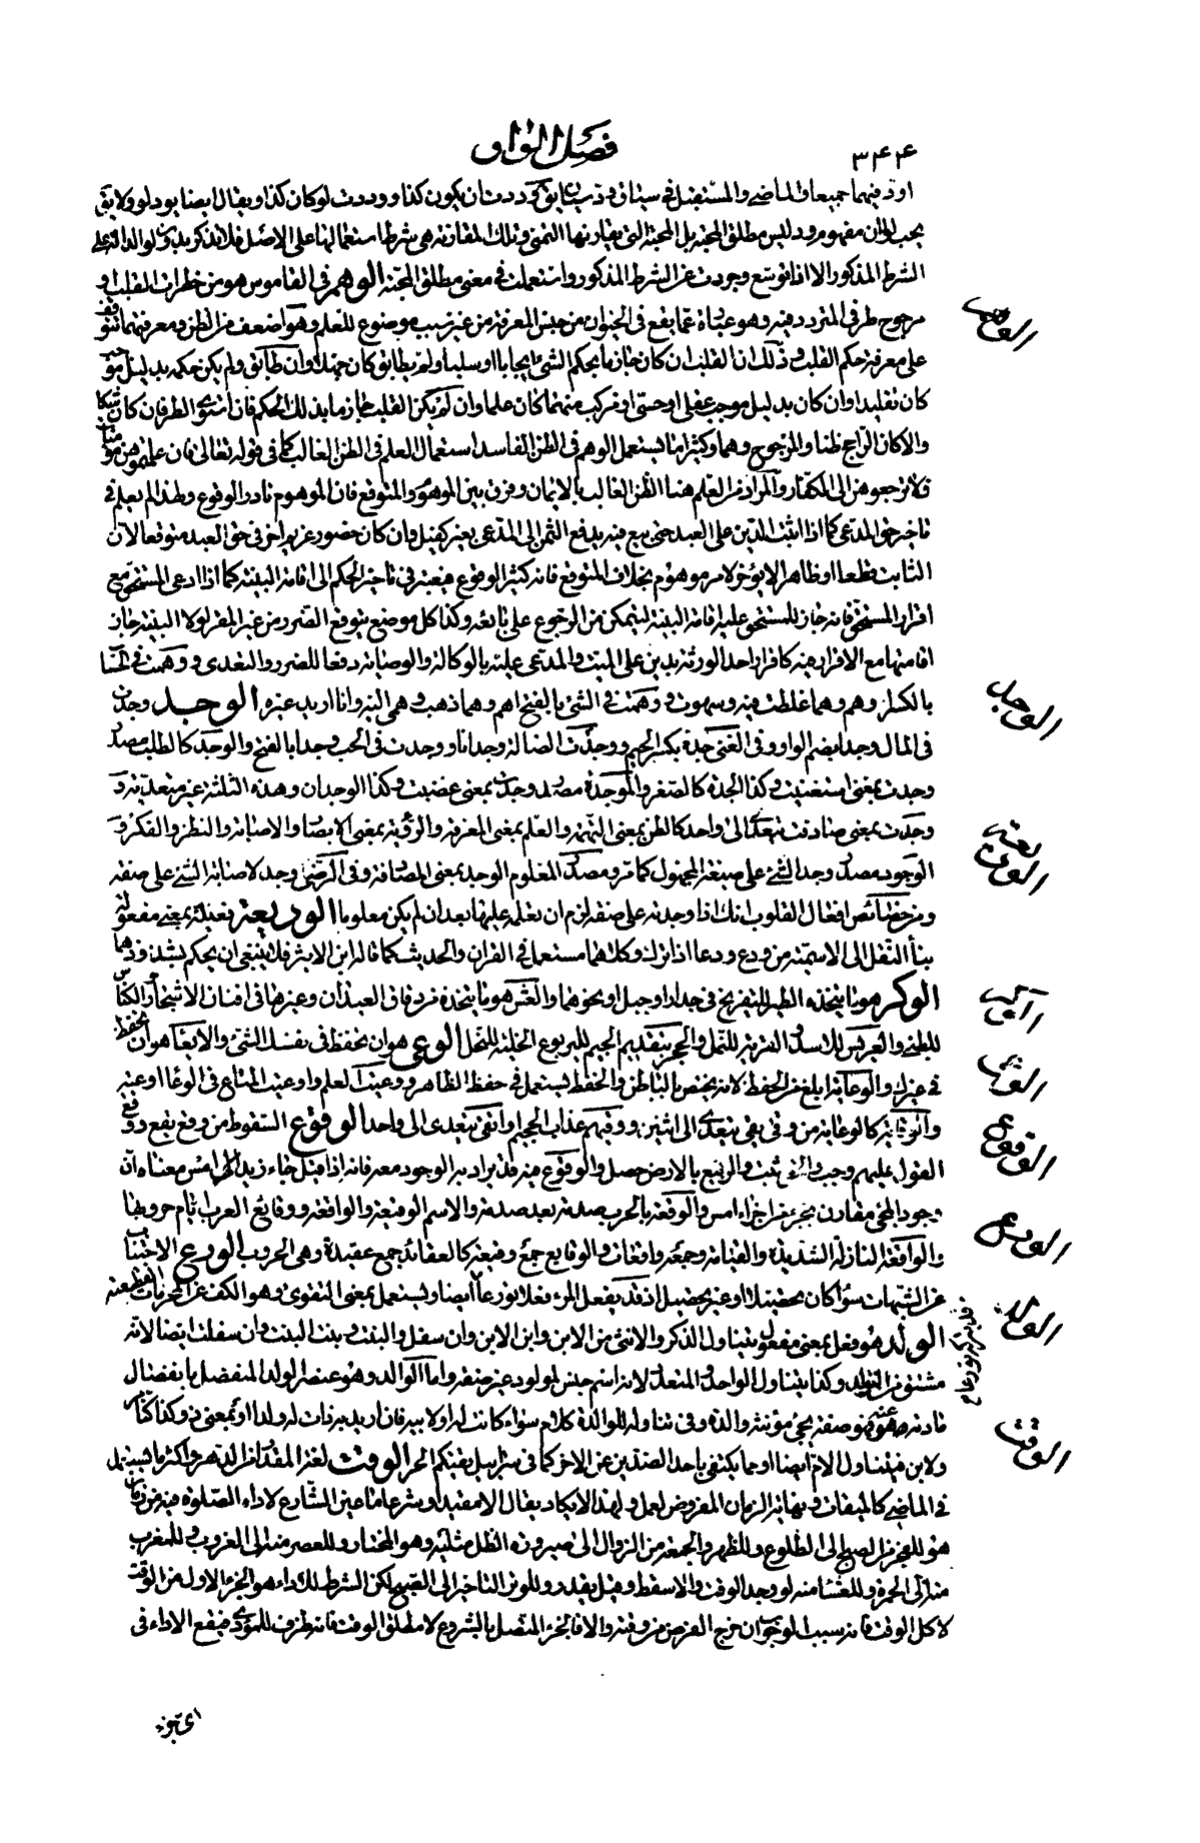 ٣٤٤
فصل الواو
الشرط المذكور الا اذا توسع وجردت عن الشرط المذكور واستعملت في معنى مطلق المحبة الوهم في القاموس هو من خطرات القلب او
مرجوح طرفي المتردد فيه وهو عبارة عما يقع في الحيوان من جنس المعرفة من غير سبب موضوع للعلم وهو اضعف من الظن ومعرفتهما تتوقف
على معرفة حكم القلب وذلك ان القلب ان كان جازما بحكم الشئ ايجابا او سلبا ولم يطابق كان جهلا وان طابق ولم يكن حكمه بدليل موجب
كان تقليدا وان كان بدليل موجب عقلي او حسي او مركب منهما كان علما وان لم يكن القلب جازما بذلك الحكم فان استوى الطرفان كان شكا
والا كان الراجح ظنا والمرجوح وهما وكثيرا ما يستعمل الوهم في الظن الفاسد استعمال العلم في الظن الغالب كما في قوله تعالى فان علمتموهن مؤمنات
فلا ترجعوهن الى الكفار والمراد من العلم هنا الظن الغالب بالايمان وفرق بين الموهوم والمتوقع فان الموهوم نادر الوقوع ولهذا لم يعلم في
تاخير حق المدعى كما اذا اثبت الدين على العبد حتى بيع فيه يدفع الثمن الى المدعي بغير كفيل وان كان حضور غريم اخر في حق العبد متوقعا لان
الثابت قطعا او ظاهرا لا يؤخر لامر موهوم بخلاف المتوقع فانه كثير الوقوع فيعتبر في تاخير الحكم الى اقامة البينة كما اذا ادعى المستحق مع
اقرار المستحق فانه جاز للمستحق عليه اقامة البينة ليتمكن من الرجوع على بائعه وكذا كل موضع يتوقع الضرر من غير المقر لولا البينة جاز
اقامتها مع الاقرار فيه كاقرار احد الورثة بدين على الميت والمدعى عليه بالوكالة والوصاية دفعا للضرر والتعدي ووهمت في الحساب
بالكسر اوهم وهما غلطت فيه وسهوت ووهمت في الشئ بالفتح اهم وهما ذهب وهمي اليه وانا اريد غيره الوجد وجدت
في المال وجدا بضم الواو وفي الغنى جدة بكسر الجيم ووجدت الضالة وجدانا ووجدت في الحب وجدا بالفتح والوجد كالطلب مصدر
وجدت بمعنى استغنيت وكذا الجدة كالصفر والموجدة مصدر وجدت بمعنى غضبت وكذا الوجدان وهذه الثلثة غير متعدية و
وجدت بمعنى صادفت يتعدى الى واحد كالظن بمعنى التهمة والعلم بمعنى المعرفة والرؤية بمعنى الابصار والاصابة والنظر والفكر و
الوجود مصدر وجد الشئ على صيغة المجهول كما مر ومصدر المعلوم الوجد بمعنى المصادفة وفي الرضي وجد لاصابة الشئ على صفة
ومن خصائص افعال القلوب انك اذا وجدته على صفة لزم ان تعلمه عليها بعد ان لم يكن معلوما الوديعة فعيلة بمعنى مفعولة
بتاء النقل الى الاسمية من ودع ودعا اذا ترك وكلاهما مستعمل في القران والحديث كما قاله ابن الاثير فلا ينبغي ان يحكم بشذوذهما
الوكر هو ما يتخذه الطير للتفريخ في جدار او جبل او نحوهما والعش هو ما يتخذه من دقاق العيدان وغيرها في افنان الاشجار والكناس
للظبي والعريس للاسد والقرية للنمل والجحر بتقديم الجيم لليربوع الخلية للنحل الوعي هو ان تحفظ في نفسك الشئ والايعاء هو ان تحفظ
في غيرك والوعاية ابلغ من الحفظ لانه يختص بالباطن والحفظ يستعمل في حفظ الظاهر ووعيت العلم واوعيت المتاع في الوعاء اوعيه
والوقاية كالوعاية من وقى يقي يتعدى الى اثنين ووقيهم عذاب الجحيم واتقى يتعدى الى واحد الوقوع السقوط من وقع يقع ووقع
القول عليهم وجب ثبت والربيع بالارض حصل والوقوع منه قد يراد به الوجود معه فانه اذا قيل جاء زيد امس معناه ان
وجود المجئ مقارن بجزء من اجزاء امس والوقعة بالحرب صدمة بعد صدمة والاسم الوقيعة والواقعة ووقايع العرب ايام حروبها
والواقعة النازلة الشديدة والقيامة وجمعه واقعات والوقايع جمع وقيعة كالعقائد جمع عقيدة وهي الحروب الورع الاجتناب
عن الشبهات سواء كان تحصيلا او غير تحصيل اذ قد يفعل المرء فعلا تورعا ايضا ويستعمل بمعنى التقوى وهو الكف عن المحرمات القطعية
الولد هو فعل بمعنى مفعول يتناول الذكر والانثى من الابن وابن الابن وان سفل والبنت وبنت البنت وان سفلت ايضا لانه
مشتق من التولد وكذا يتناول الواحد والمتعدد لانه اسم جنس لمولود غير صفة واما الوالد وهو عنصر الولد المنفصل بانفصال
مادته عنه فهو صفة يجئ مؤنثه والدة وفي تناوله للوالدة كلام سواء كانت له اولا بيه فان اريد به ذات له ولد او بمعنى ذي وكذا كتامر
ولابن فيتناول الام ايضا او مما يكتفى باحد الضدين عن الاخر كما في سرابيل تقيكم الحر الوقت لغة المقدار من الدهر واكثر ما يستعمل
في الماضي كالميقات ونهاية الزمان المفروض لعمل ولهذا لا يكاد يقال الا مقيدا وشرعا ما عين الشارع لاداء الصلوة فيه من زمان
هو للفجر من الصبح الى الطلوع وللظهر والجمعة من الزوال الى صيرورة الظل مثليه وهو المختار وللعصر منه الى الغروب وللمغرب
منه الى الحمرة وللعشاء منه لو وجد الوقت والا سقط وقيل يقدر وللوتر التاخير الى الصبح لكن الشرط للاداء هو الجزء الاول من الوقت
لا كل الوقت فانه سبب الوجوب ان خرج الفرض من وقته والا فالجزء المتصل بالشروع لا مطلق الوقت فانه ظرف للمؤدى فيقع الاداء في
الوجد
الوقوع
الورع
الولد
الوقت
اى جزء